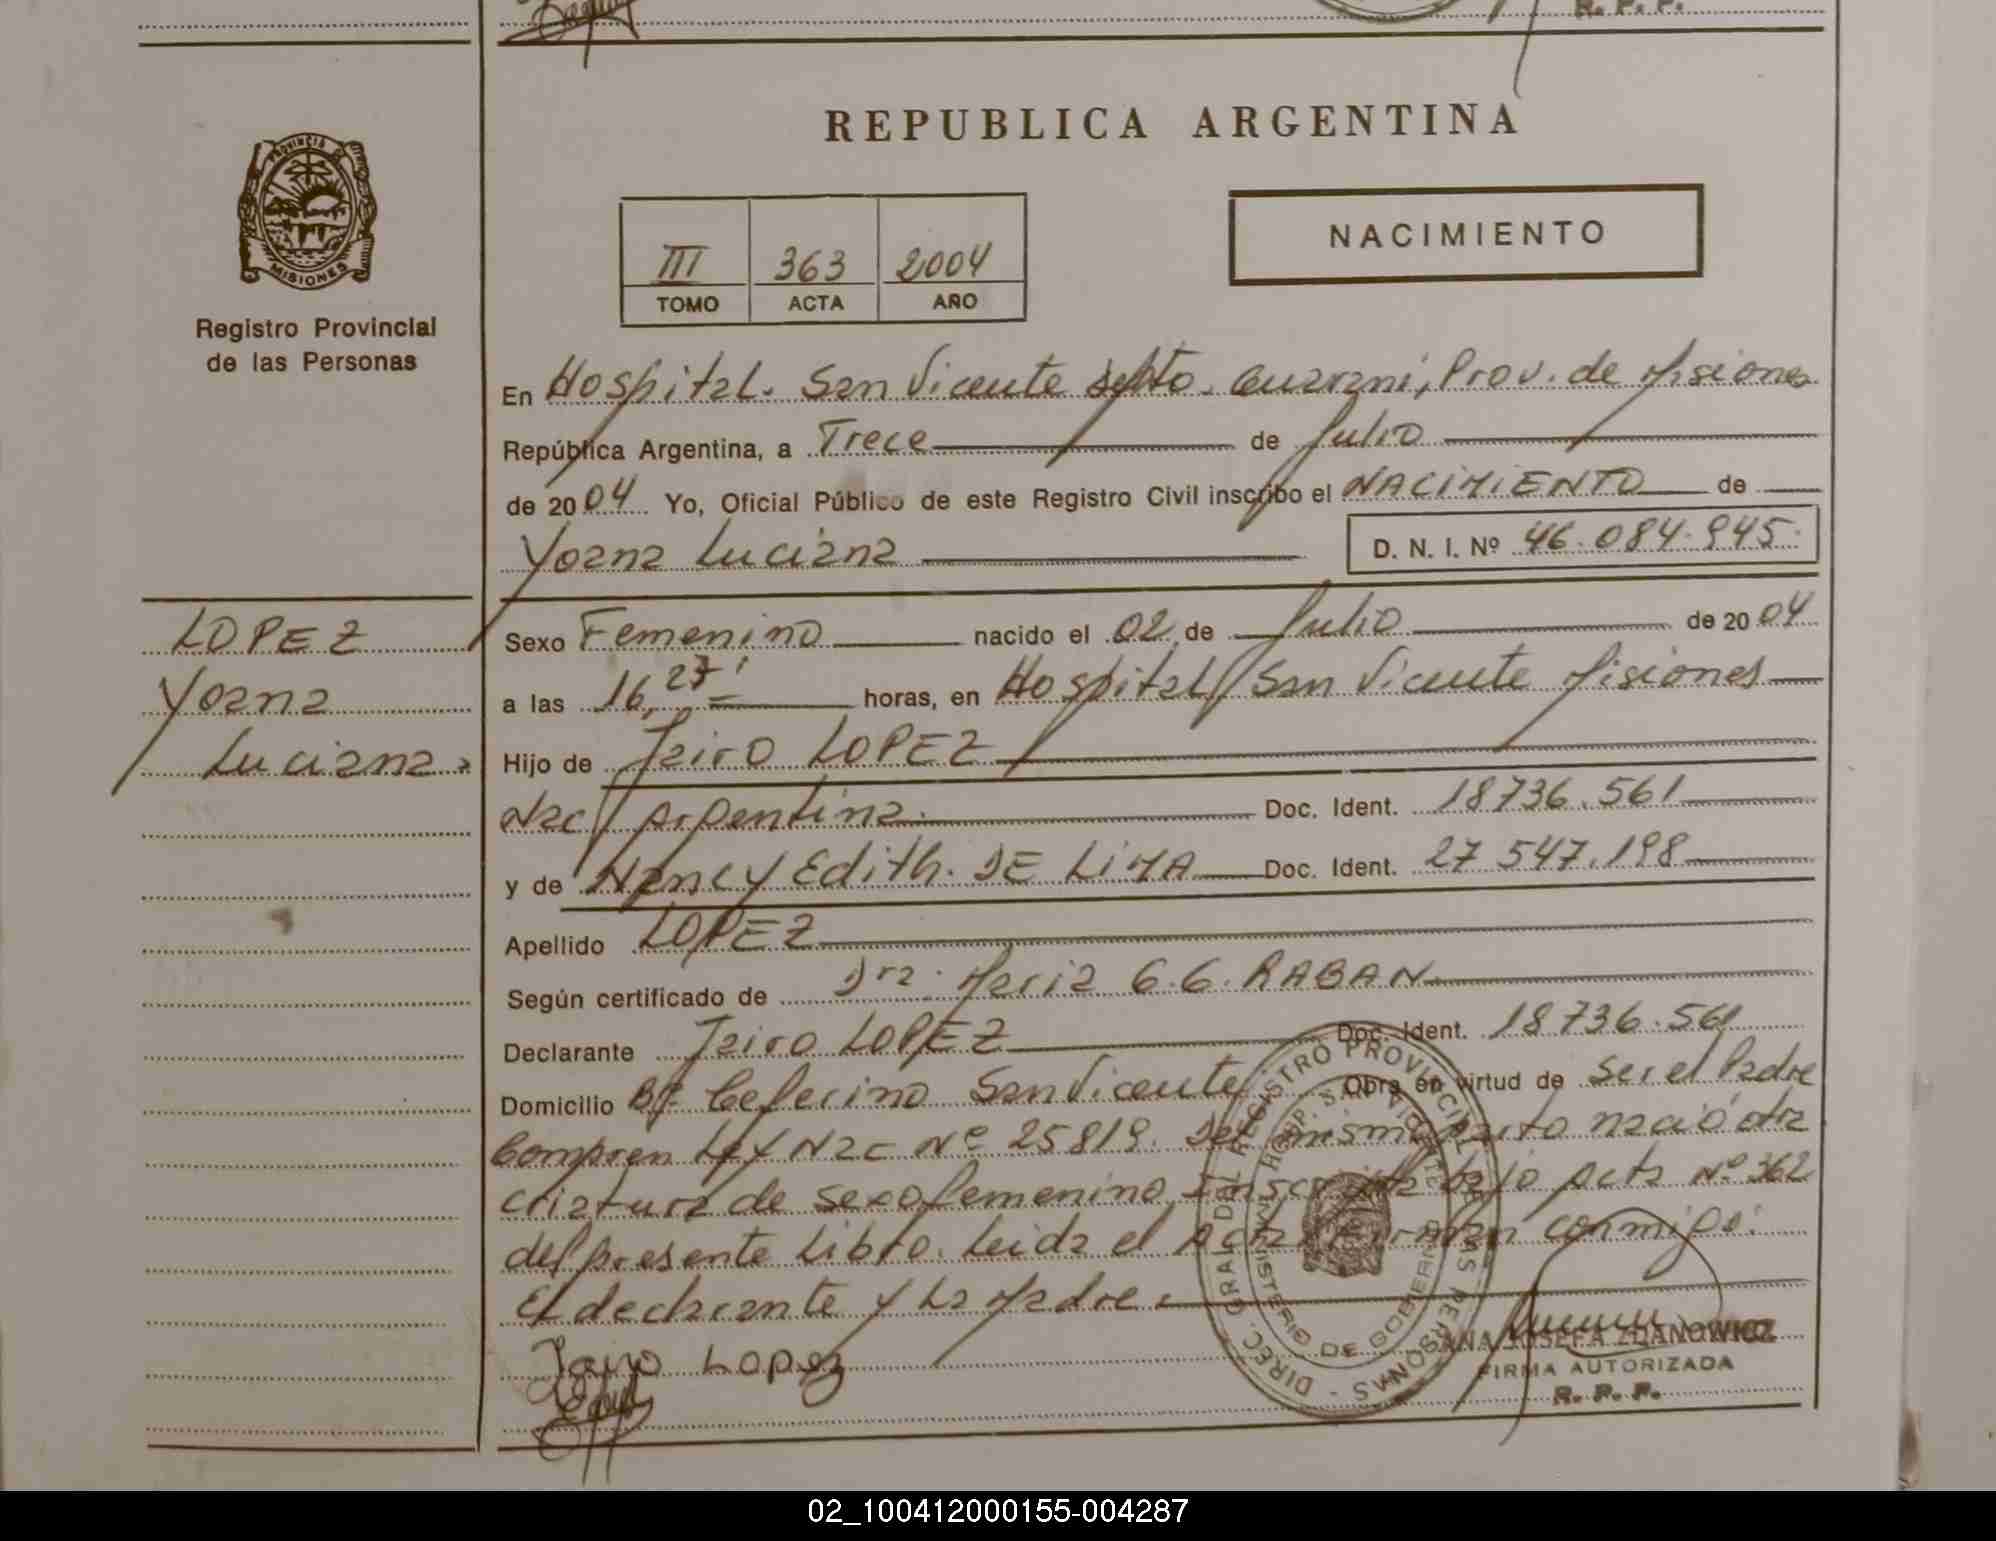 R. P. P.
REPUBLICA ARGENTINA
PROVINCIA DE
MISIONES
Registro Provincial
de las Personas
III 363 2004
TOMO ACTA AÑO
NACIMIENTO
En Hospital. San Vicente Dpto. Guarani, Prov. de Misiones
República Argentina, a Trece de Julio
de 2004 Yo, Oficial Público de este Registro Civil inscribo el NACIMIENTO de
Yoana Luciana D. N. I. Nº 46.084.945.
LOPEZ
Yoana
Luciana
Sexo Femenino nacido el 02 de Julio de 2004
a las 16,27' horas, en Hospital San Vicente Misiones
Hijo de Jairo LOPEZ
Nac/ Argentina. Doc. Ident. 18736.561
y de Nancy Edith. DE LIMA Doc. Ident. 27 547.198
Apellido LOPEZ
Según certificado de Dra. Maria G.G. RABAN
Declarante Jairo LOPEZ Doc. Ident. 18736.561
Domicilio Bº Ceferino San Vicente Obra en virtud de Ser el Padre
Compren Ley Nac Nº 25819. Del mismo parto nació otra
criatura de sexo femenino Inscripta bajo acta Nº 362
del presente Libro. Leida el Acta Firman conmigo:
El declarante y La Madre.
Jairo Lopez
DIREC. GRAL. DEL REGISTRO PROVINCIAL DE LAS PERSONAS
HOSP. SAN VICENTE
MINISTERIO DE GOBIERNO
ANA JOSEFA ZDANOWICZ
FIRMA AUTORIZADA
R. P. P.
02_100412000155-004287